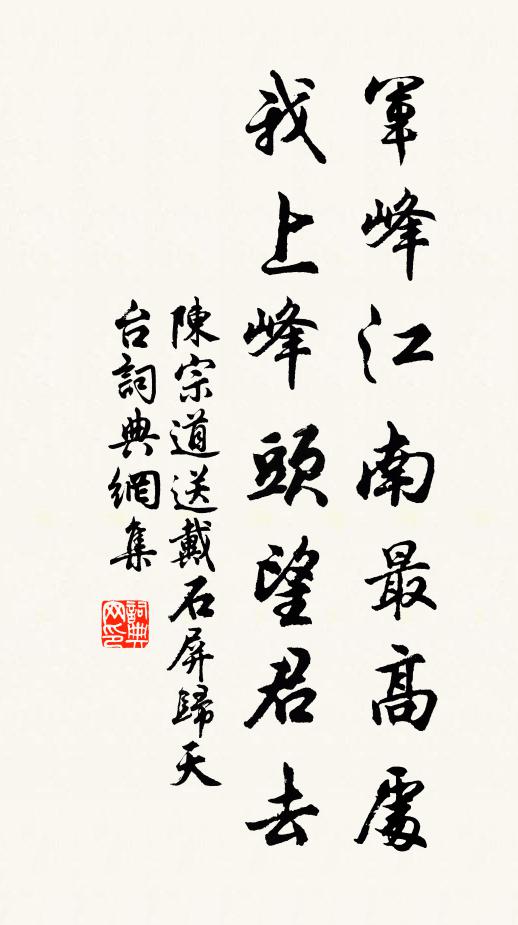 軍峰江南最高處
我上峰頭望君去
陳宗道送戴石屏歸天
台詞典網集
詞典网印